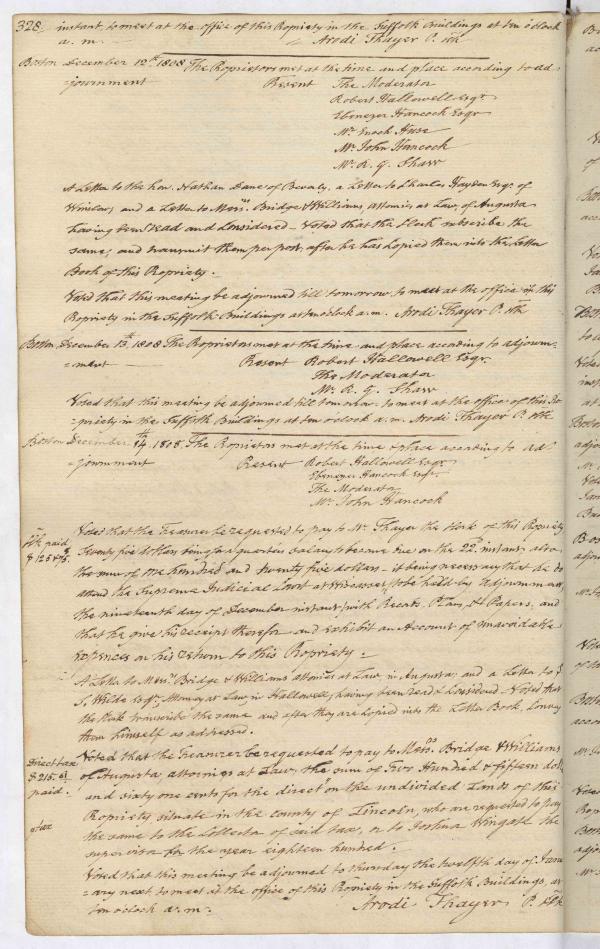 328. instant, to meet at the office of this Propriety in the Suffolk Buildings at ten o'clock
a. m. Arodi Thayer P. Clk
Boston December 12th 1808 The Proprietors met at the time and place according to ad-
=journment Present The Moderator
Robert Hallowell Esqr.
Ebenezer Hancock Esqr
Mr. Enoch Huse
Mr. John Hancock
Mr. R. G. Shaw
A Letter to the hon. Nathan Dane of Beverly, a Letter to Charles Hayden Esqr. of
Winslow, and a Letter to Messrs. Bridge & Williams attornies at Law, of Augusta
having been Read and Considered — Voted that the Clerk subscribe the
same, and transmit them per post, after he has Copied them into the Letter
Book of this Propriety.
Voted that this meeting be adjourned till tomorrow, to meet at the office of this
Propriety in the Suffolk Buildings at ten o'clock a.m. Arodi Thayer P. Clk
Boston, December 13th 1808 The Proprietors met at the time and place according to adjourn-
=ment Present Robert Hallowell Esqr.
The Moderator
Mr. R. G. Shaw
Voted that this meeting be adjourned till tomorrow to meet at the office of this Pro-
priety in the Suffolk Buildings at ten o'clock a.m. Arodi Thayer P. Clk
Boston December 14th 1808 The Proprietors met at the time & place according to ad-
=journment Present Robert Hallowell Esqr.
Ebenezer Hancock Esqr.
The Moderator
Mr. John Hancock
Voted that the Treasurer be requested to pay to Mr. Thayer the Clerk of this Propriety
Clk paid
$125 & 75.
Seventy five dollars being for a quarters salary to become due on the 22d. instant, also
the sum of one hundred and twenty five dollars — it being necessary that he
attend the Supreme Judicial Court at Wiscasset, to be held by adjournment
the nineteenth day of December instant, with Records, Plans, & Papers, and
that he give his receipt therefor and exhibit an Account of unavoidable
expences on his return to this Propriety.
A Letter to Messrs. Bridge & Williams attornies at Law, in Augusta; and a Letter to
S. Wilde Esqr. Attorney at Law, in Hallowell, having been Read & Considered — Voted that
the Clerk transcribe the same and after they are Copied into the Letter Book, Convey
them himself as addressed.
Direct tax
$215.61
paid.
Voted that the Treasurer be requested to pay to Messrs. Bridge & Williams
of Augusta, attornies at Law, the sum of Two Hundred & fifteen doll
and sixty one cents for the direct on the undivided Lands of this
Propriety situate in the county of Lincoln, who are requested to pay
tax
the same to the Collector of said tax, or to Joshua Wingate the
supervisor for the year eighteen hundred.
Voted that this meeting be adjourned to thursday the twelfth day of Janu
=ary next to meet at the office of this Propriety in the Suffolk Buildings, at
ten o'clock a. m. Arodi Thayer P. Clk